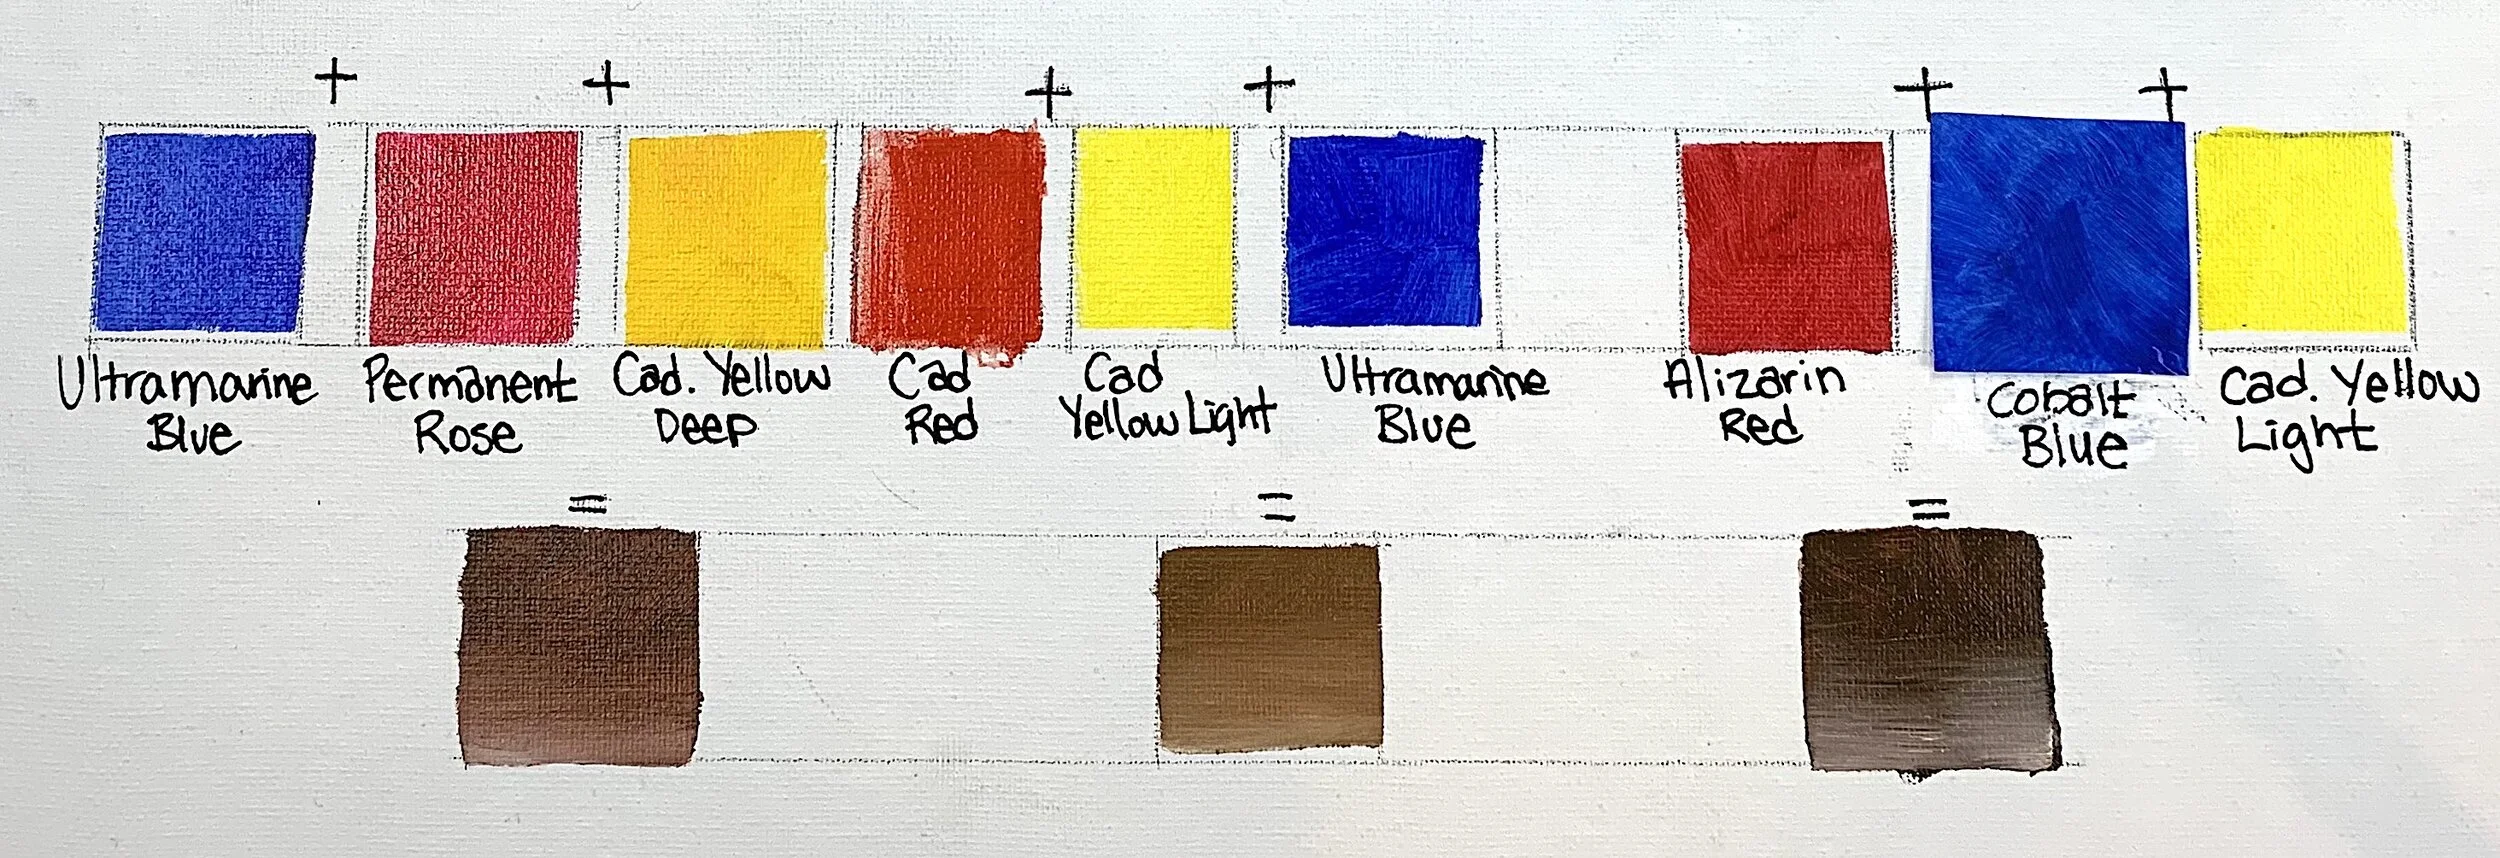 + + + + + +
Ultramarine Blue
Permanent Rose
Cad. Yellow Deep
Cad Red
Cad Yellow Light
Ultramarine Blue
Alizarin Red
Cobalt Blue
Cad. Yellow Light
= = =